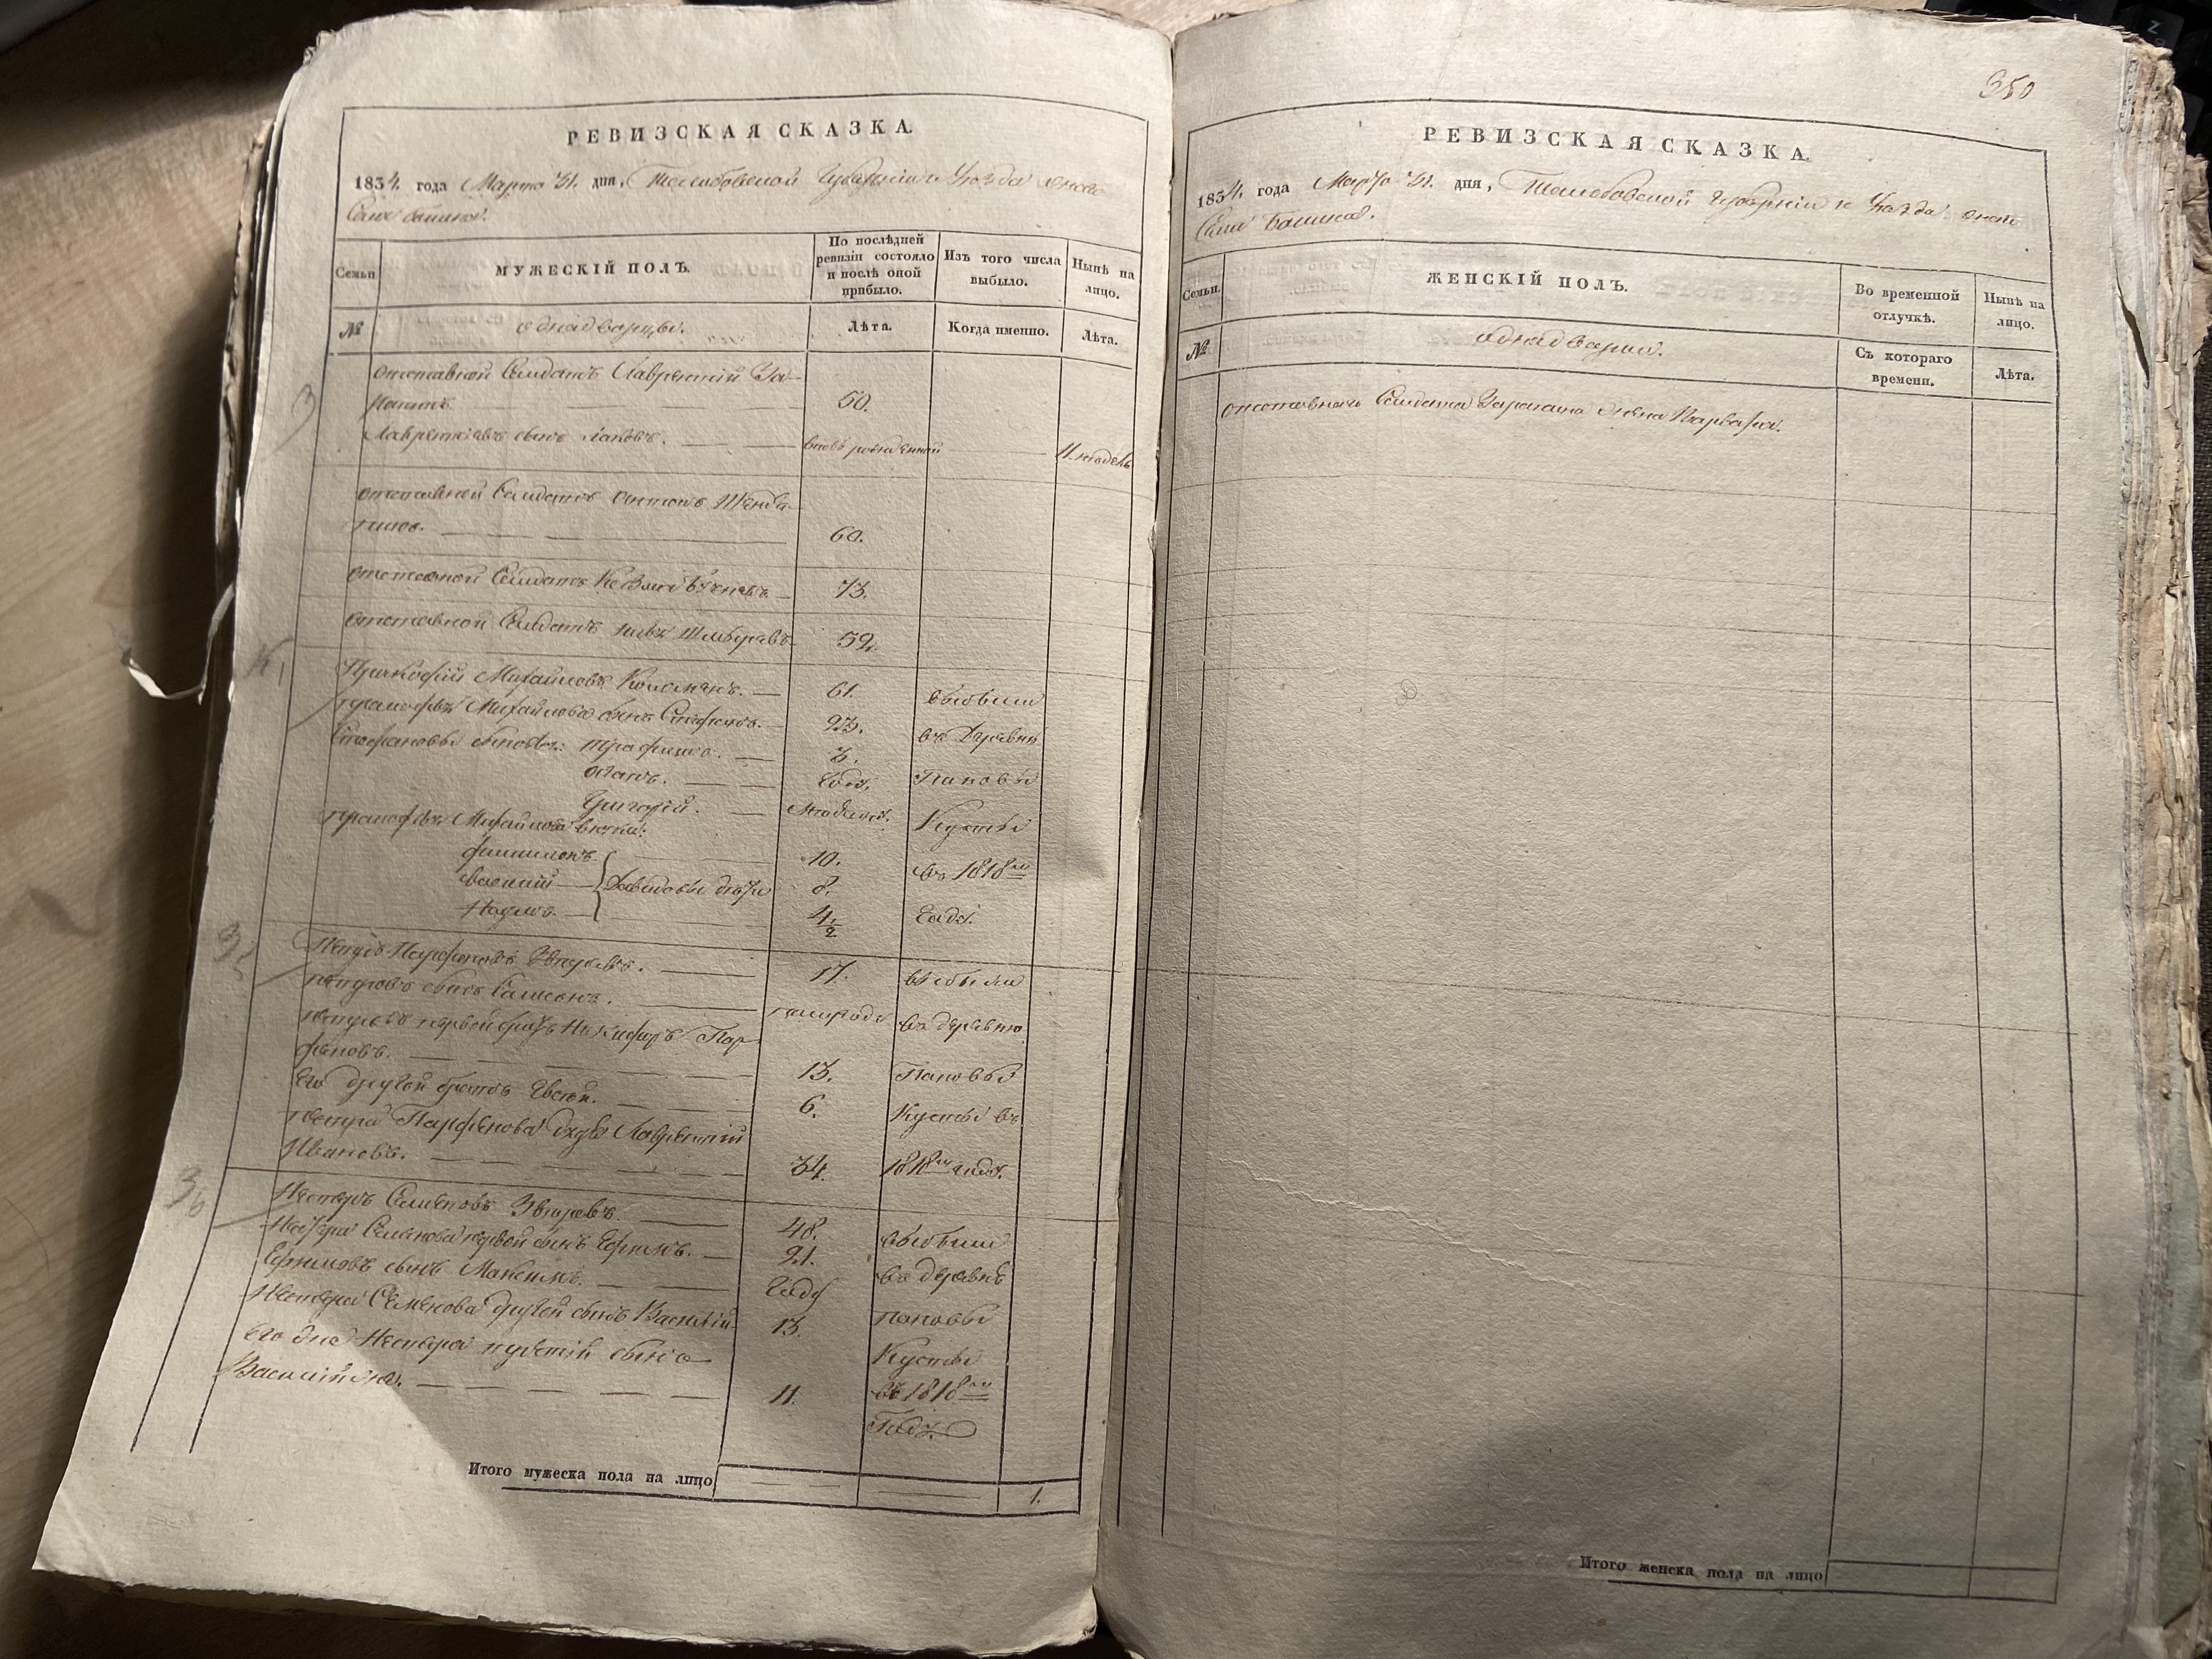 РЕВИЗСКАЯ СКАЗКА.
1834. года Марта 31. дня, Тамбовской Губернии и Уезда
Села
Семьи
МУЖЕСКІЙ ПОЛЪ.
По послѣдней ревизіи состояло и послѣ оной прибыло.
Изъ того числа выбыло.
Нынѣ на лицо.
№
однадворцы.
Лѣта.
Когда именно.
Лѣта.
отставной Салдатъ Лаврентий
50.
Лаврентиевъ сынъ Яковъ.
вновь рожденной
11. недель
отставной Салдатъ Антонъ
60.
отставной Салдатъ
73.
отставной Салдатъ
59.
Прокофий Михайловъ
61.
выбыли
Прокофья Михайлова сынъ Стефанъ.
23.
въ деревню
Стефановы сыновья: Трафимъ.
3.
Осипъ.
Годъ.
Пановы
Григорий.
Кусты
Прокофья Михайлова внуки:
Филимонъ.
10.
въ 1818мъ
Василий
Давидовы дети
8.
Наумъ.
4 1/2
Годе.
Петръ Парфеновъ Зверевъ.
17.
выбыли
Петровъ сынъ Самсонъ.
полугода
въ деревню
Петровъ первой братъ Никифоръ Пар-
феновъ.
13.
Пановы
Его другой братъ Евсей.
6.
Кусты въ
Петра Парфенова дядя Лаврентий
Ивановъ.
34.
1818мъ годе.
Нестеръ Семеновъ Зверевъ.
48.
выбыли
Нестера Семенова первой сынъ Ефимъ.
21.
въ деревню
Ефимовъ сынъ Максимъ.
Годъ
Пановы
Нестера Семенова другой сынъ Василий
13.
Кусты
Его же Нестера третий сынъ
Василий же.
11.
въ 1818мъ
Годе.
Итого мужеска пола на лицо
1.
350
РЕВИЗСКАЯ СКАЗКА.
1834. года Марта 31. дня, Тамбовской Губернии и Уезда
Села
Семьи.
ЖЕНСКІЙ ПОЛЪ.
Во временной отлучкѣ.
Нынѣ на лицо.
№
однадворки.
Съ котораго времени.
Лѣта.
отставнаго Салдата жена Варвара.
Итого женска пола на лицо